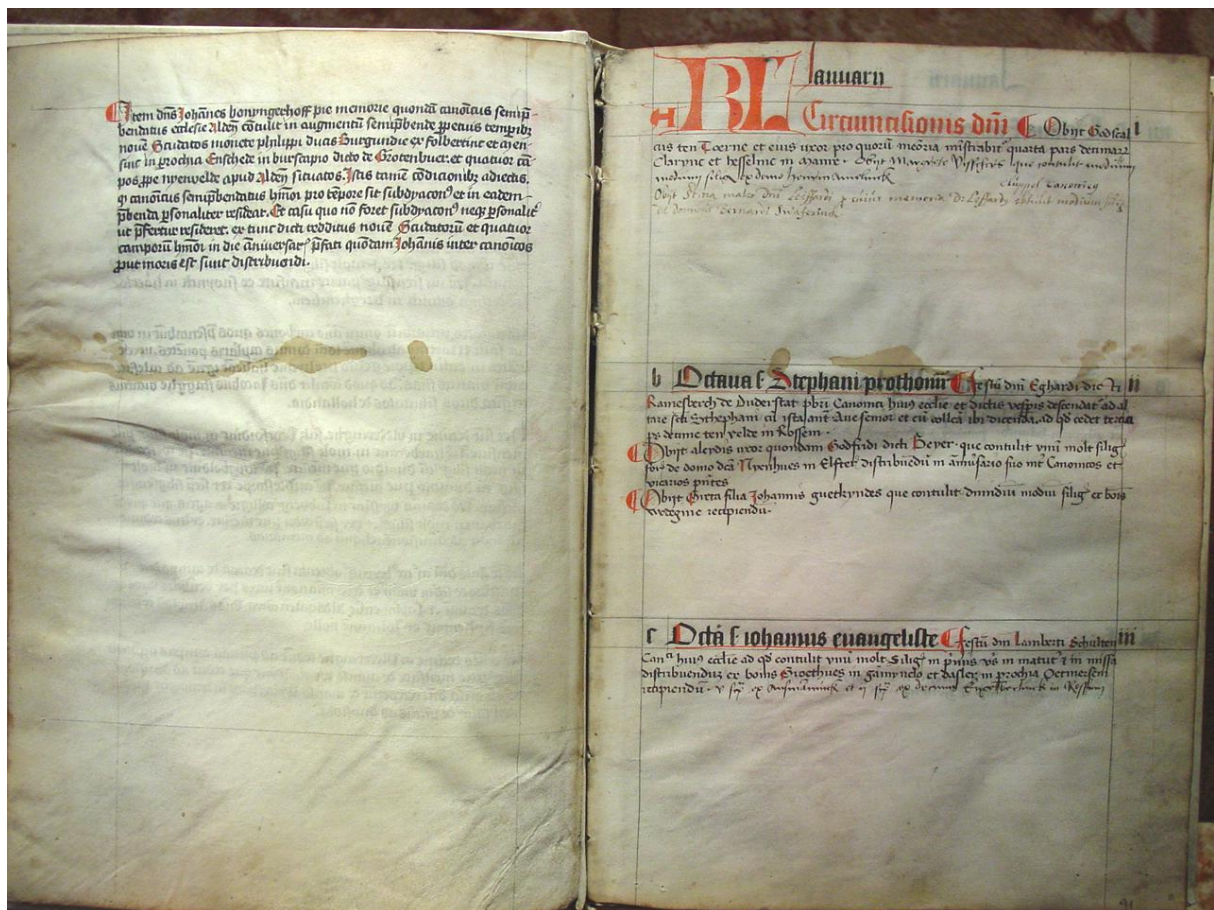 Item dn̄s Johān̄es bonyngerhoff pie memorie quondā canōicus semip̄-
bendatus ecclesie Aldēn cōtulit in augmentū semip̄bende ꝑpetuis temporibȝ
nouē Scudatos monete phylippi ducas Burgundie ex folbertinc et
sitis in ꝑrochia Enschede in burscapio dicto de Grotenbuer. et quatuor cā-
pos ꝓpe nyenvelde apud Aldēn situatos. Istis tamē cōdicionibȝ adiectis.
qͥ canōicus semip̄bendatus hmōi pro tēpore sit subdyaconꝰ et in eadem
p̄benda ꝑsonaliter resideat. Et casu quo nō foret subdyaconꝰ neqȝ ꝑsonalit̄
ut p̄fertur resideret. ex tunc dicti redditus nouē Scudatorū et quatuor
camporum hmōi in die āniuersar̄ p̄fati quōdam Johānis inter canōicos
ꝓut moris est sunt distribuēdi.
KL Januarii
A Circumcisionis dn̄i Obijt Godscal i
cus ten Toerne et eius uxor pro quorū meōria mīstrabit quarta pars decimarȝ
Claryne et hesselinc in Manre. Obijt que contulit medium
modium silig ex domo
Obijt Stina mater dn̄i Leffardi canonicꝰ cuius memorie Dn̄s Leffardꝰ contulit modium
et Bernardi
b Octaua s̄ Stephani prothom̄ Festū dn̄i Eghardi die ii
Ramesberch de Duderstat pb̄ri Canonici huiꝰ ecclīe et dictis vesp̄is descendat ad al
tare sc̄ti Stephani cū ista ant̄ Aue senior et cū collc̄a ibi dicenda. ad qd̄ cedet tercia
ps decime ten velde in Rossem.
Obijt aleydis uxor quondam Godfridi dicti Beyer. que contulit vnū molt siliḡ
de domo dc̄a Nyenhues in Elfter distribuēdū in anīusario suo int̄ Canonicos et
vicarios pn̄tes
Obijt Girta filia Johannis que contulit dimidiū modiū siliḡ ex bonis
recipiendū.
c Octā s̄ iohannis euangeliste Festū dn̄i Lamberti Schulten iii
Canͨⁱ huiꝰ ecclīe ad qd̄ contulit vnū molt Siliḡ in p̄mis vs̄ in matut̄ ⁊ in missa
distribuendū ex bonis Groethues in et in ꝑrochia Oetmersem
recipiendū. v ex et ii ex decima in Rossum